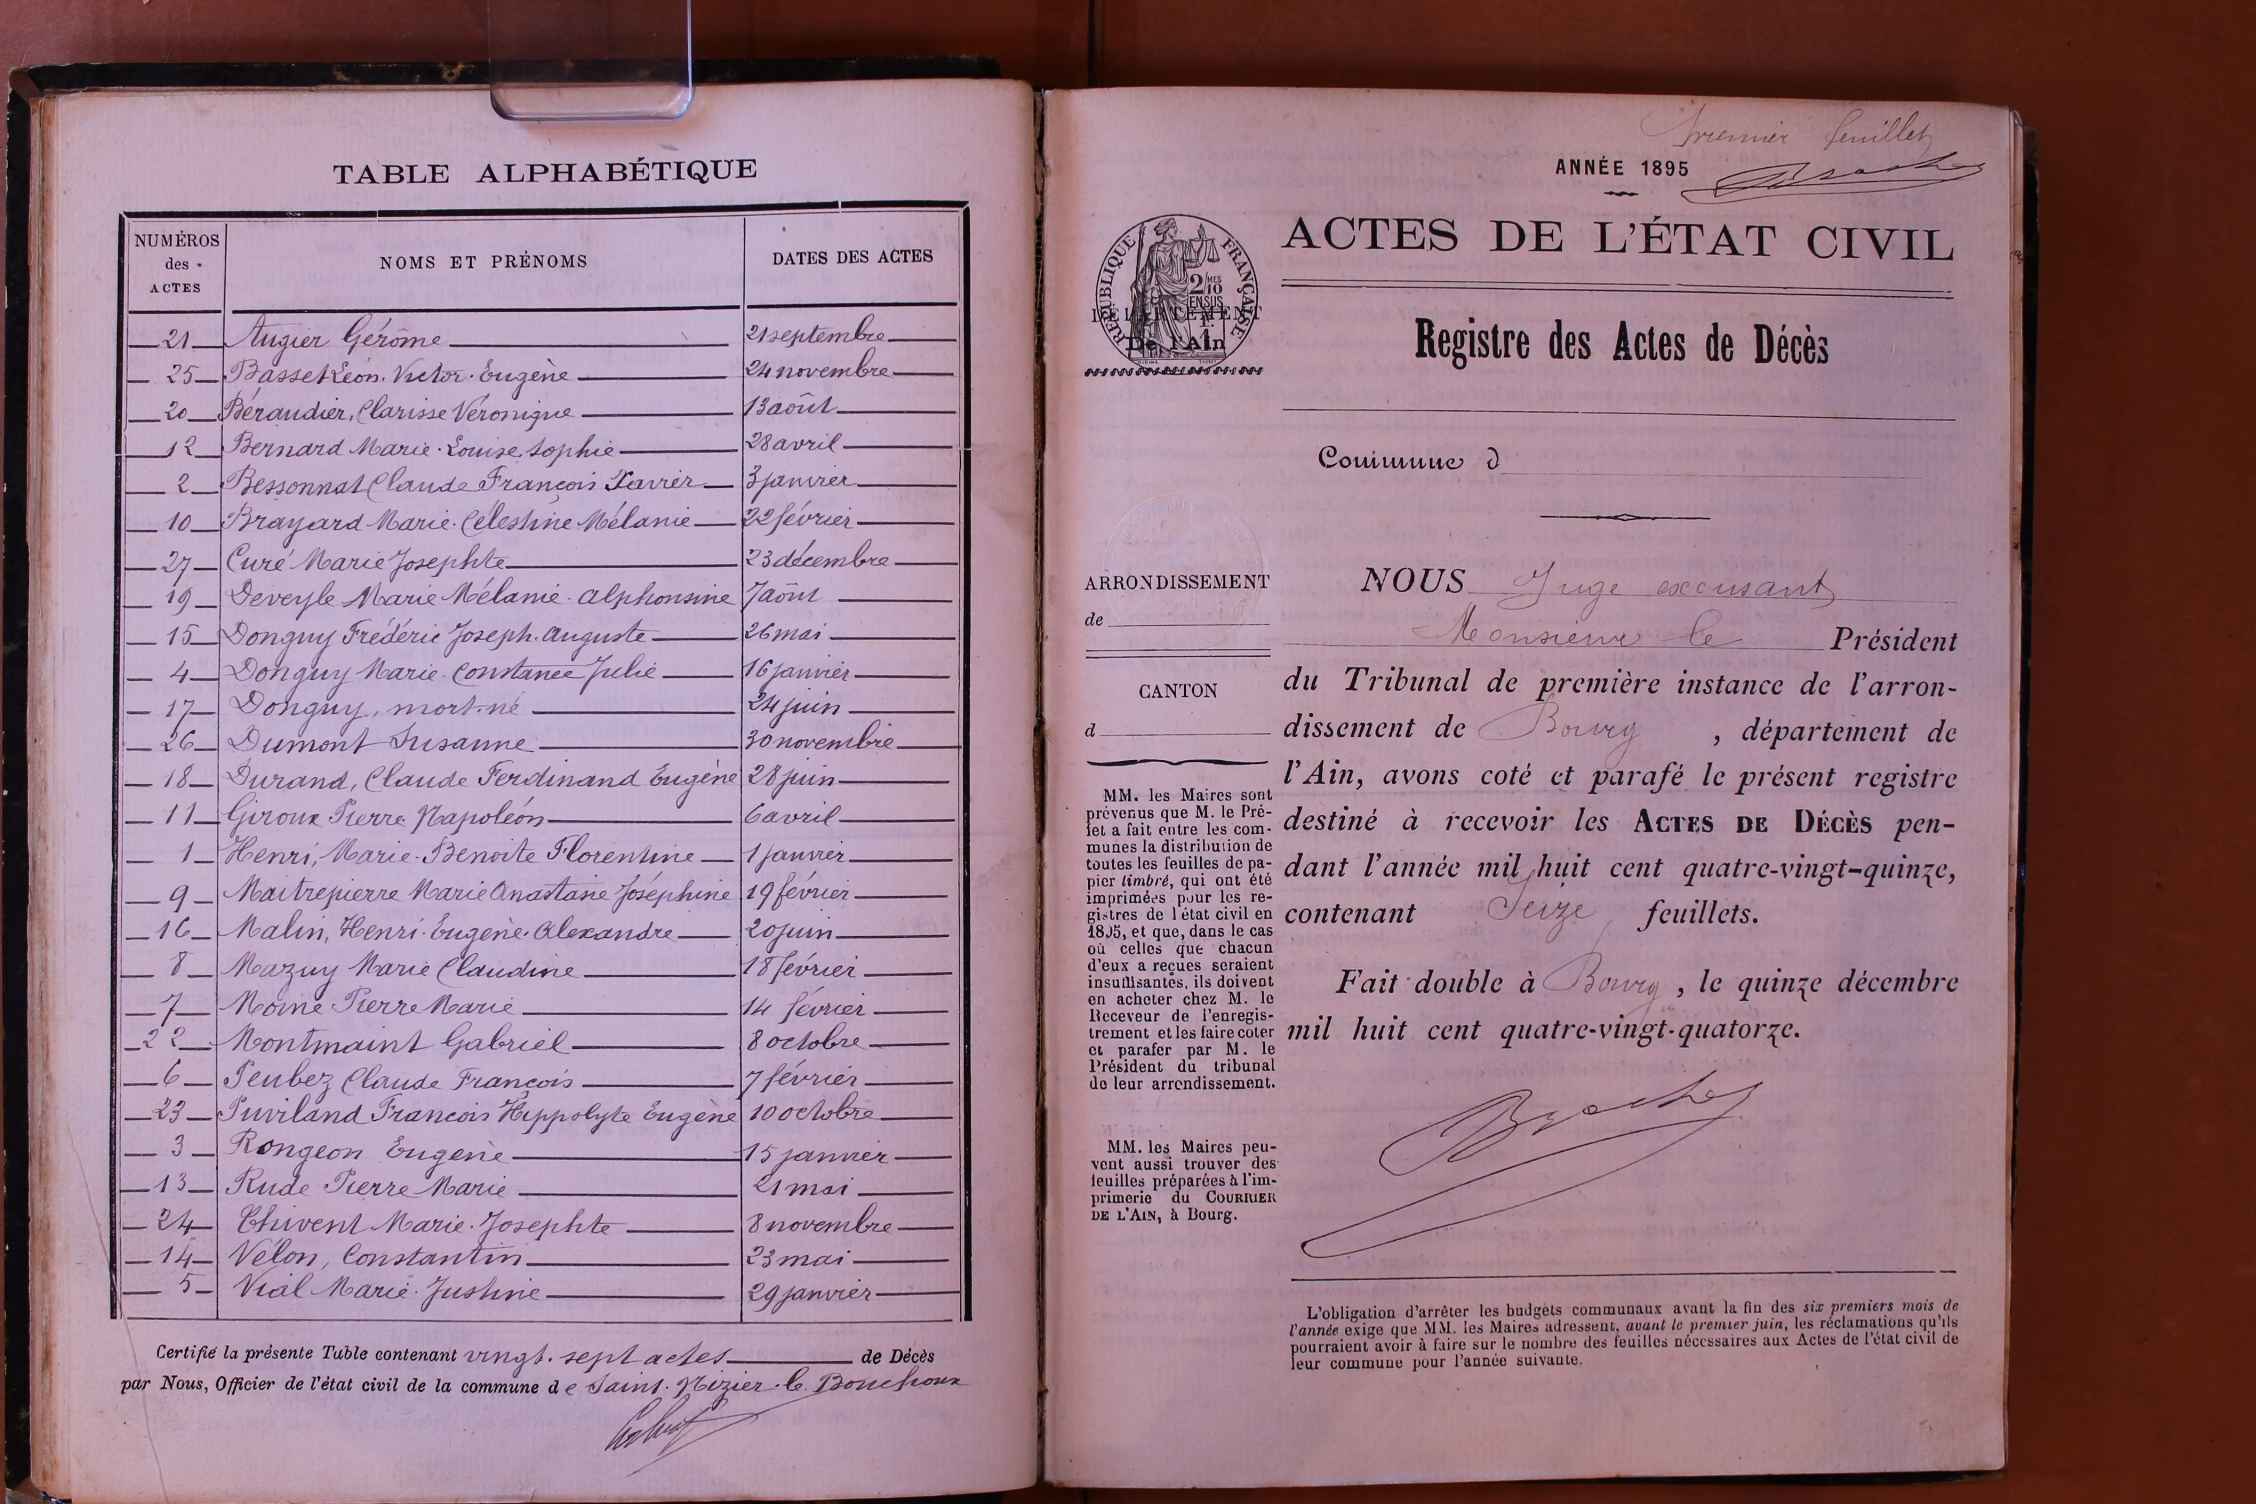 TABLE ALPHABÉTIQUE
NUMÉROS des ACTES
NOMS ET PRÉNOMS
DATES DES ACTES
21 Augier Gérôme 21 septembre
25 Basset Léon. Victor. Eugène 24 novembre
20 Béraudier, Clarisse Véronique 13 août
12 Bernard Marie. Louise Sophie 28 avril
2 Bessonnat Claude François Xavier 3 janvier
10 Brayard Marie. Célestine Mélanie 22 février
27 Curé Marie Josephte 23 décembre
19 Deveyle Marie Mélanie. Alphonsine 7 août
15 Donguy Frédéric Joseph. Auguste 26 mai
4 Donguy Marie. Constance Julie 16 janvier
17 Donguy, mort-né 24 juin
26 Dumont Susanne 30 novembre
18 Durand, Claude Ferdinand Eugène 28 juin
11 Giroux Pierre Napoléon 6 avril
1 Henri, Marie. Benoite Florentine 1 janvier
9 Maitrepierre Marie Anastasie Joséphine 19 février
16 Malin, Henri. Eugène. Alexandre 20 juin
8 Mazuy Marie Claudine 18 février
7 Moine Pierre Marie 14 février
22 Montmaint Gabriel 8 octobre
6 Peubez Claude François 7 février
23 Puviland François Hippolyte Eugène 10 octobre
3 Rongeon Eugène 15 janvier
13 Rude Pierre Marie 21 mai
24 Thivent Marie. Josephte 8 novembre
14 Vélon, Constantin 23 mai
5 Vial Marie. Justine 29 janvier
Certifié la présente Table contenant vingt. sept actes de Décès
par Nous, Officier de l'état civil de la commune de Saint. Nizier. le Bouchoux
Premier feuillet
ANNÉE 1895
Broches
RÉPUBLIQUE FRANÇAISE
2/10 MES
EN SUS
1F.
DÉPARTEMENT
De l'Ain
ACTES DE L'ÉTAT CIVIL
Registre des Actes de Décès
Commune d
ARRONDISSEMENT
de
CANTON
d
MM. les Maires sont
prévenus que M. le Pré-
fet a fait entre les com-
munes la distribution de
toutes les feuilles de pa-
pier timbré, qui ont été
imprimées pour les re-
gistres de l'état civil en
1895, et que, dans le cas
où celles que chacun
d'eux a reçues seraient
insuffisantes, ils doivent
en acheter chez M. le
Receveur de l'enregis-
trement et les faire coter
et parafer par M. le
Président du tribunal
de leur arrondissement.
MM. les Maires peu-
vent aussi trouver des
feuilles préparées à l'im-
primerie du COURRIER
DE L'AIN, à Bourg.
NOUS Juge excusant
Monsieur le Président
du Tribunal de première instance de l'arron-
dissement de Bourg, département de
l'Ain, avons coté et parafé le présent registre
destiné à recevoir les ACTES DE DÉCÈS pen-
dant l'année mil huit cent quatre-vingt-quinze,
contenant Seize feuillets.
Fait double à Bourg, le quinze décembre
mil huit cent quatre-vingt-quatorze.
Broches
L'obligation d'arrêter les budgets communaux avant la fin des six premiers mois de
l'année exige que MM. les Maires adressent, avant le premier juin, les réclamations qu'ils
pourraient avoir à faire sur le nombre des feuilles nécessaires aux Actes de l'état civil de
leur commune pour l'année suivante.